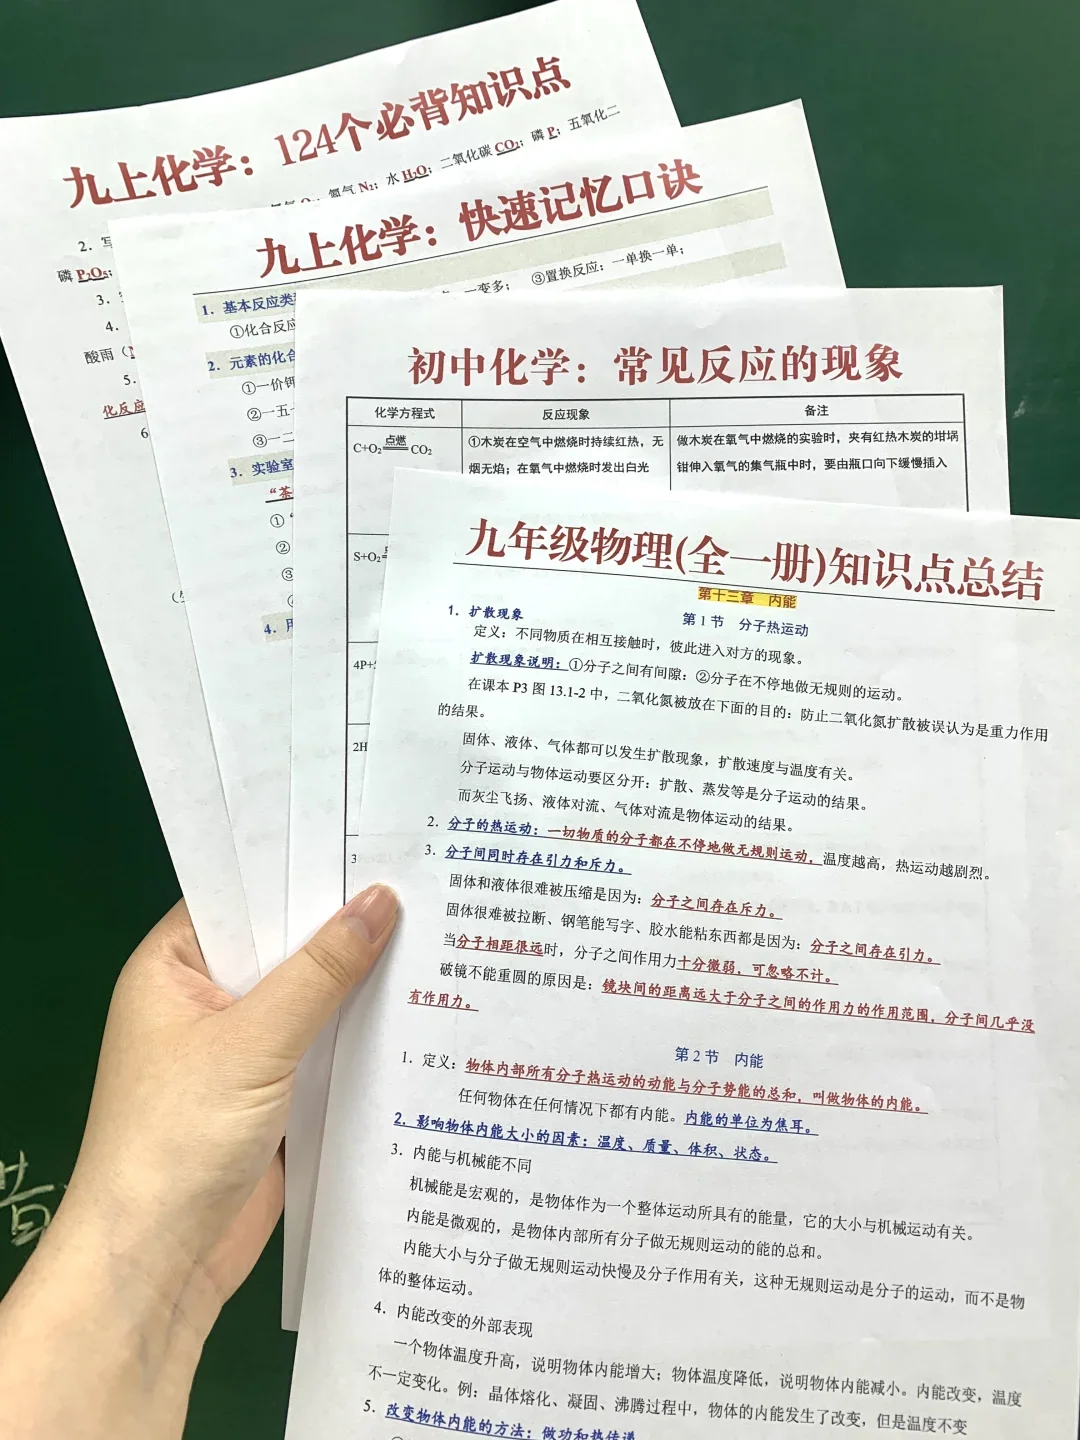 九上化学：124个必背知识点
氮气 N₂；水 H₂O；二氧化碳 CO₂；磷 P；五氧化二
2．写
磷 P₂O₅；
3．
4．
酸雨（
5．
化反应
6
九上化学：快速记忆口诀
1．基本反应类
①化合反应
一变多；　③置换反应；一单换一单；
2．元素的化合
①一价钾
②一五
③一二
3．实验室
“茶
①“
②
③
4．用
初中化学：常见反应的现象
化学方程式　反应现象　备注
C+O₂ 点燃 CO₂
①木炭在空气中燃烧时持续红热，无
烟无焰；在氧气中燃烧时发出白光
做木炭在氧气中燃烧的实验时，夹有红热木炭的坩埚
钳伸入氧气的集气瓶中时，要由瓶口向下缓慢插入
S+O₂
4P+5
2H
3
九年级物理(全一册)知识点总结
第十三章　内能
第 1 节　分子热运动
1．扩散现象
定义：不同物质在相互接触时，彼此进入对方的现象。
扩散现象说明：①分子之间有间隙；②分子在不停地做无规则的运动。
在课本 P3 图 13.1-2 中，二氧化氮被放在下面的目的：防止二氧化氮扩散被误认为是重力作用
的结果。
固体、液体、气体都可以发生扩散现象，扩散速度与温度有关。
分子运动与物体运动要区分开：扩散、蒸发等是分子运动的结果。
而灰尘飞扬、液体对流、气体对流是物体运动的结果。
2．分子的热运动：一切物质的分子都在不停地做无规则运动，温度越高，热运动越剧烈。
3．分子间同时存在引力和斥力。
固体和液体很难被压缩是因为：分子之间存在斥力。
固体很难被拉断、钢笔能写字、胶水能粘东西都是因为：分子之间存在引力。
当分子相距很远时，分子之间作用力十分微弱，可忽略不计。
破镜不能重圆的原因是：镜块间的距离远大于分子之间的作用力的作用范围，分子间几乎没
有作用力。
第 2 节　内能
1．定义：物体内部所有分子热运动的动能与分子势能的总和，叫做物体的内能。
任何物体在任何情况下都有内能。内能的单位为焦耳。
2．影响物体内能大小的因素：温度、质量、体积、状态。
3．内能与机械能不同
机械能是宏观的，是物体作为一个整体运动所具有的能量，它的大小与机械运动有关。
内能是微观的，是物体内部所有分子做无规则运动的能的总和。
内能大小与分子做无规则运动快慢及分子作用有关，这种无规则运动是分子的运动，而不是物
体的整体运动。
4．内能改变的外部表现
一个物体温度升高，说明物体内能增大；物体温度降低，说明物体内能减小。内能改变，温度
不一定变化。例：晶体熔化、凝固、沸腾过程中，物体的内能发生了改变，但是温度不变
5．改变物体内能的方法：做功和热传递